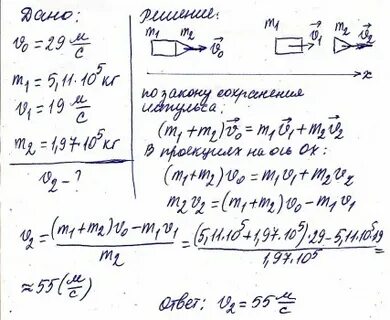 Дано:
v₀ = 29 м/с
m₁ = 5,11·10⁵ кг
v₁ = 19 м/с
m₂ = 1,97·10⁵ кг
v₂ - ?
Решение:
m₁ m₂ v⃗₀ m₁ v⃗₁ m₂ v⃗₂
x
по закону сохранения
импульса:
(m₁+m₂)v⃗₀ = m₁v⃗₁ + m₂v⃗₂
В проекциях на ось Ox:
(m₁+m₂)v₀ = m₁v₁ + m₂v₂
m₂v₂ = (m₁+m₂)v₀ - m₁v₁
v₂ = ((m₁+m₂)v₀ - m₁v₁)/m₂ = ((5,11·10⁵+1,97·10⁵)·29 - 5,11·10⁵·19)/(1,97·10⁵)
≈ 55 (м/с)
Ответ: v₂ = 55 м/с